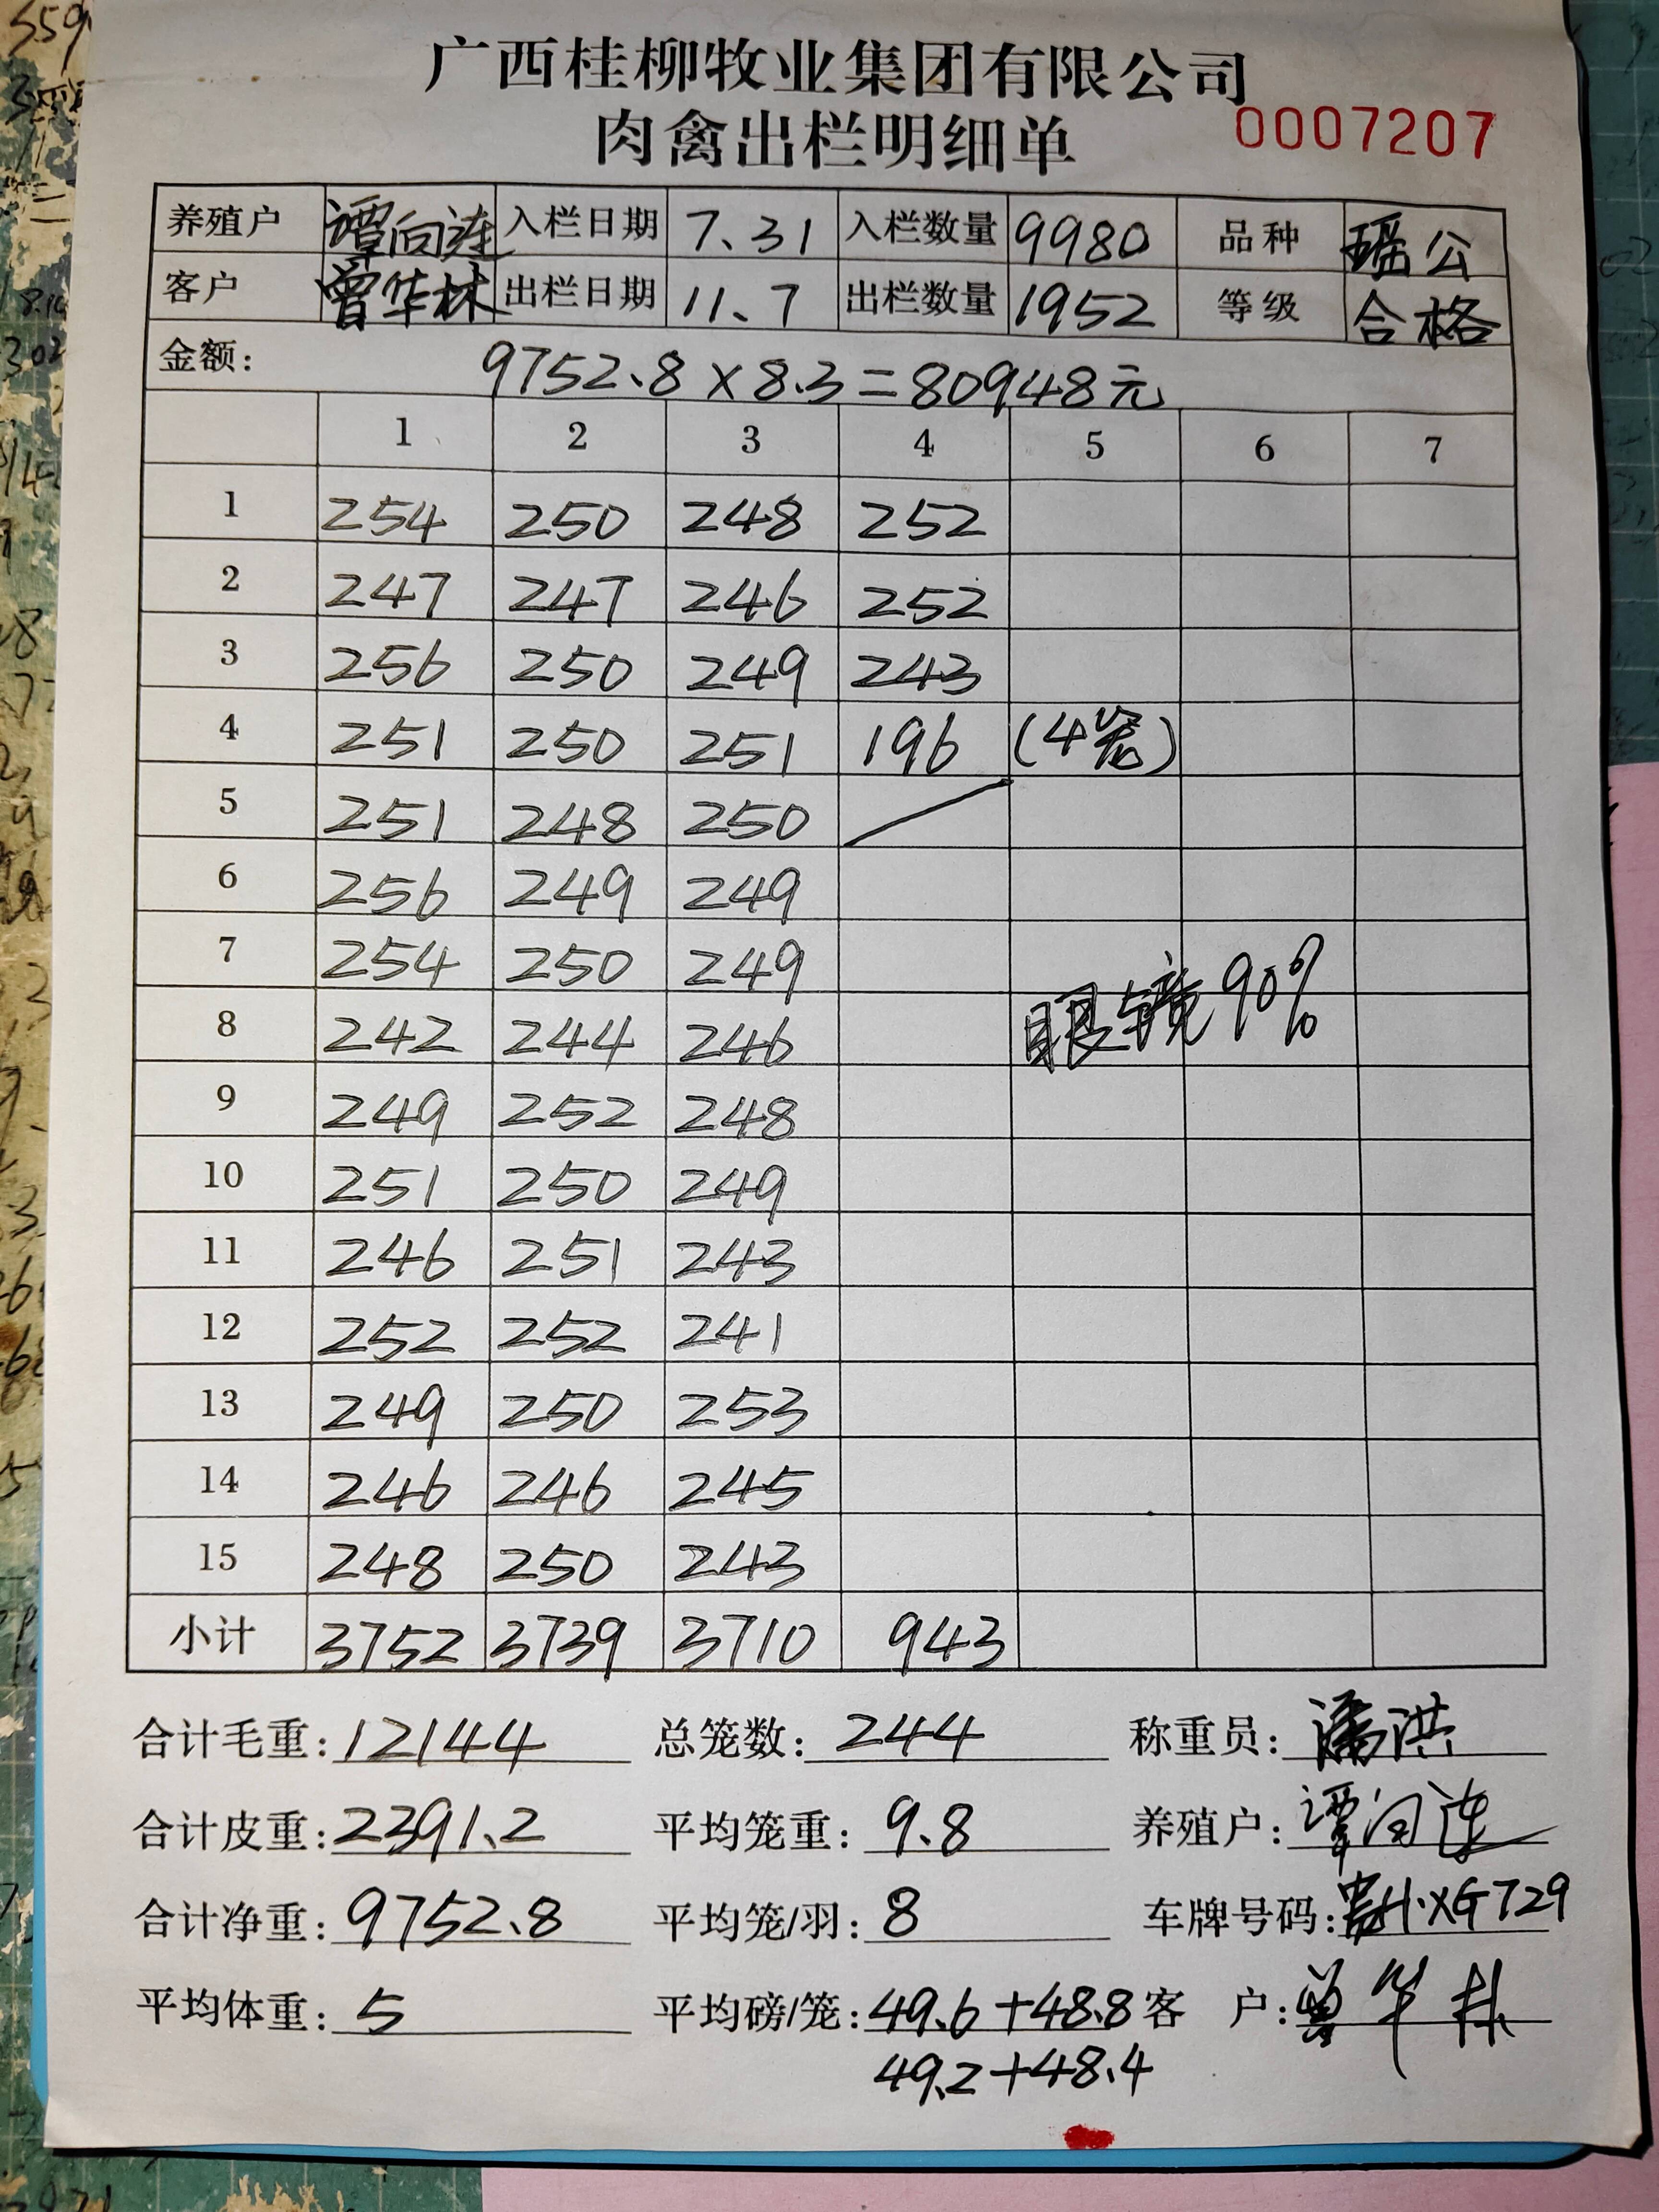 广西桂柳牧业集团有限公司
肉禽出栏明细单 0007207
养殖户 谭向连 入栏日期 7.31 入栏数量 9980 品种 瑶公
客户 曾华林 出栏日期 11.7 出栏数量 1952 等级 合格
金额: 9752.8×8.3=80948元
1 2 3 4 5 6 7
1 254 250 248 252
2 247 247 246 252
3 256 250 249 243
4 251 250 251 196 (4笼)
5 251 248 250
6 256 249 249
7 254 250 249
8 242 244 246 眼镜90%
9 249 252 248
10 251 250 249
11 246 251 243
12 252 252 241
13 249 250 253
14 246 246 245
15 248 250 243
小计 3752 3739 3710 943
合计毛重: 12144 总笼数: 244 称重员: 潘洪
合计皮重: 2391.2 平均笼重: 9.8 养殖户: 谭向连
合计净重: 9752.8 平均笼/羽: 8 车牌号码: XG729
平均体重: 5 平均磅/笼: 49.6+48.8 客户: 曾华林
49.2+48.4